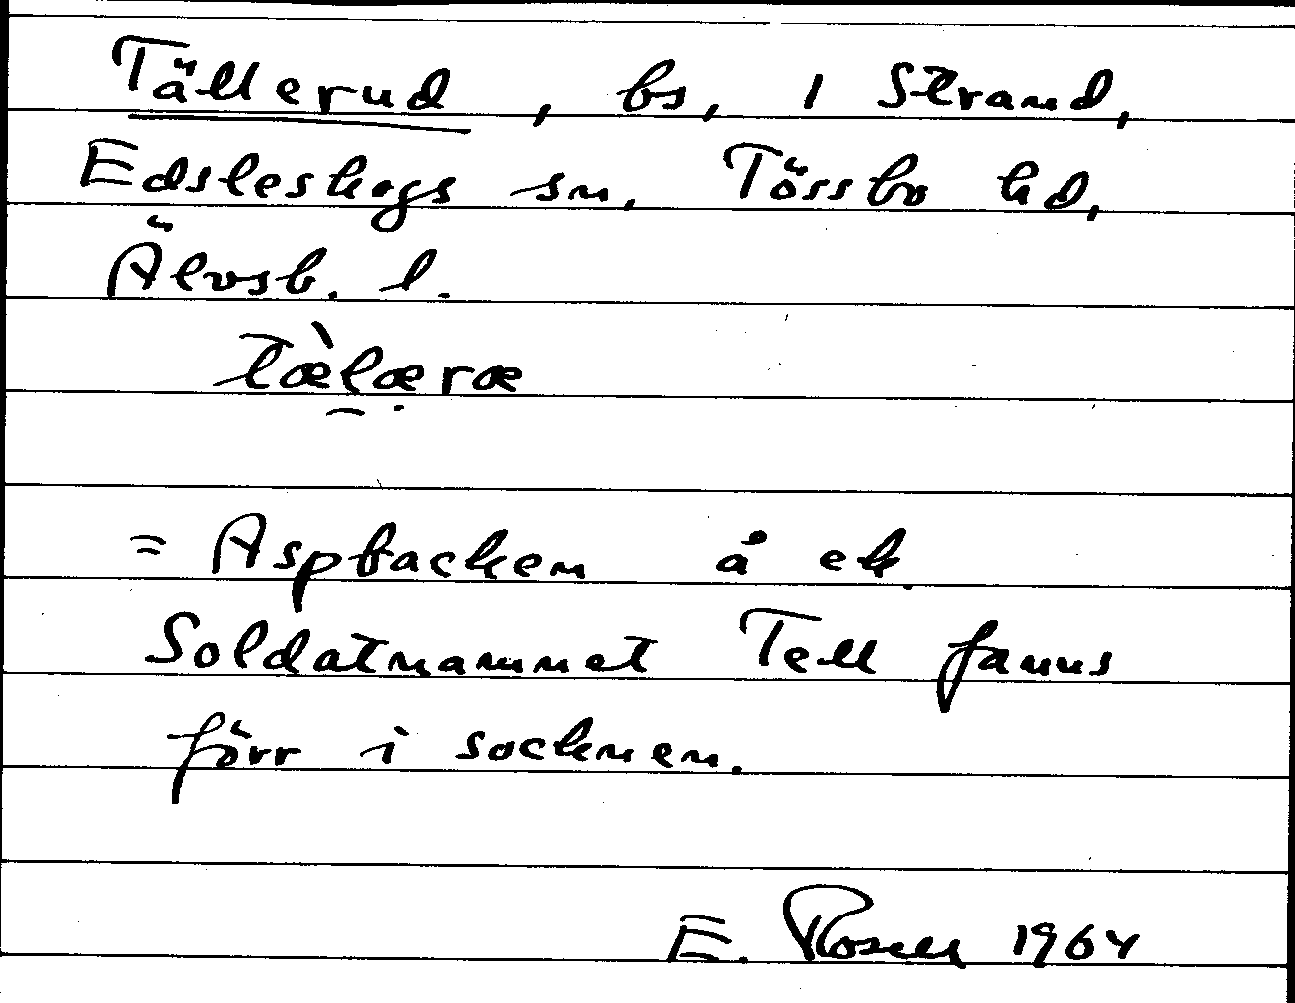 Tällerud, bs, 1 Strand,
Edsleskogs sn, Tössbo hd,
Älvsb. l.
tæ̀læræ
= Aspbacken å ek.
Soldatnamnet Tell fanns
förr i socknen.
E. Rosell 1964